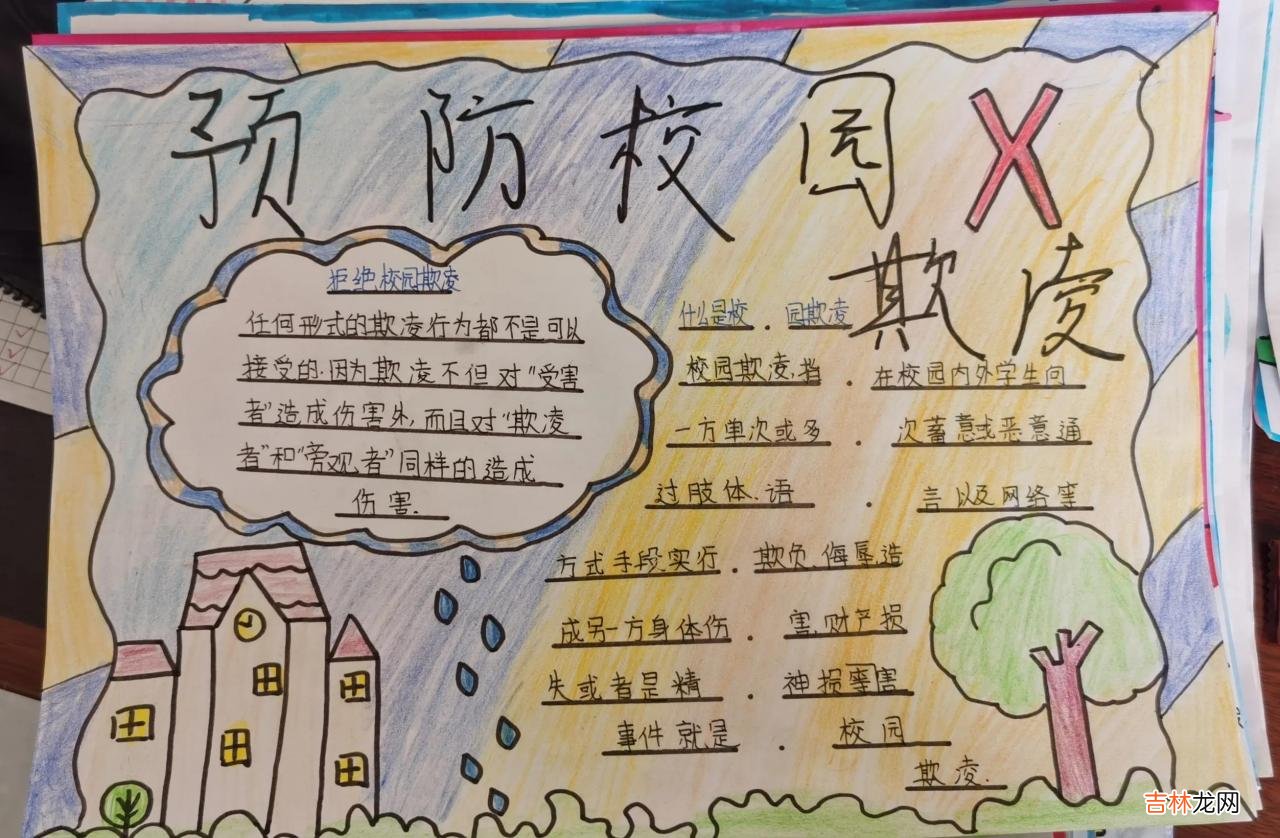 预防校园
欺凌
拒绝校园欺凌
任何形式的欺凌行为都不是可以
接受的.因为欺凌不但对"受害
者"造成伤害外,而且对"欺凌
者"和"旁观者"同样的造成
伤害.
什么是校.园欺凌
校园欺凌,指.在校园内外学生间
一方单次或多.次蓄意或恶意通
过肢体.语.言以及网络等
方式手段实行.欺负.侮辱,造
成另一方身体伤.害,财产损
失或者是精.神损害
事件就是.校园
欺凌.
吉林龙网